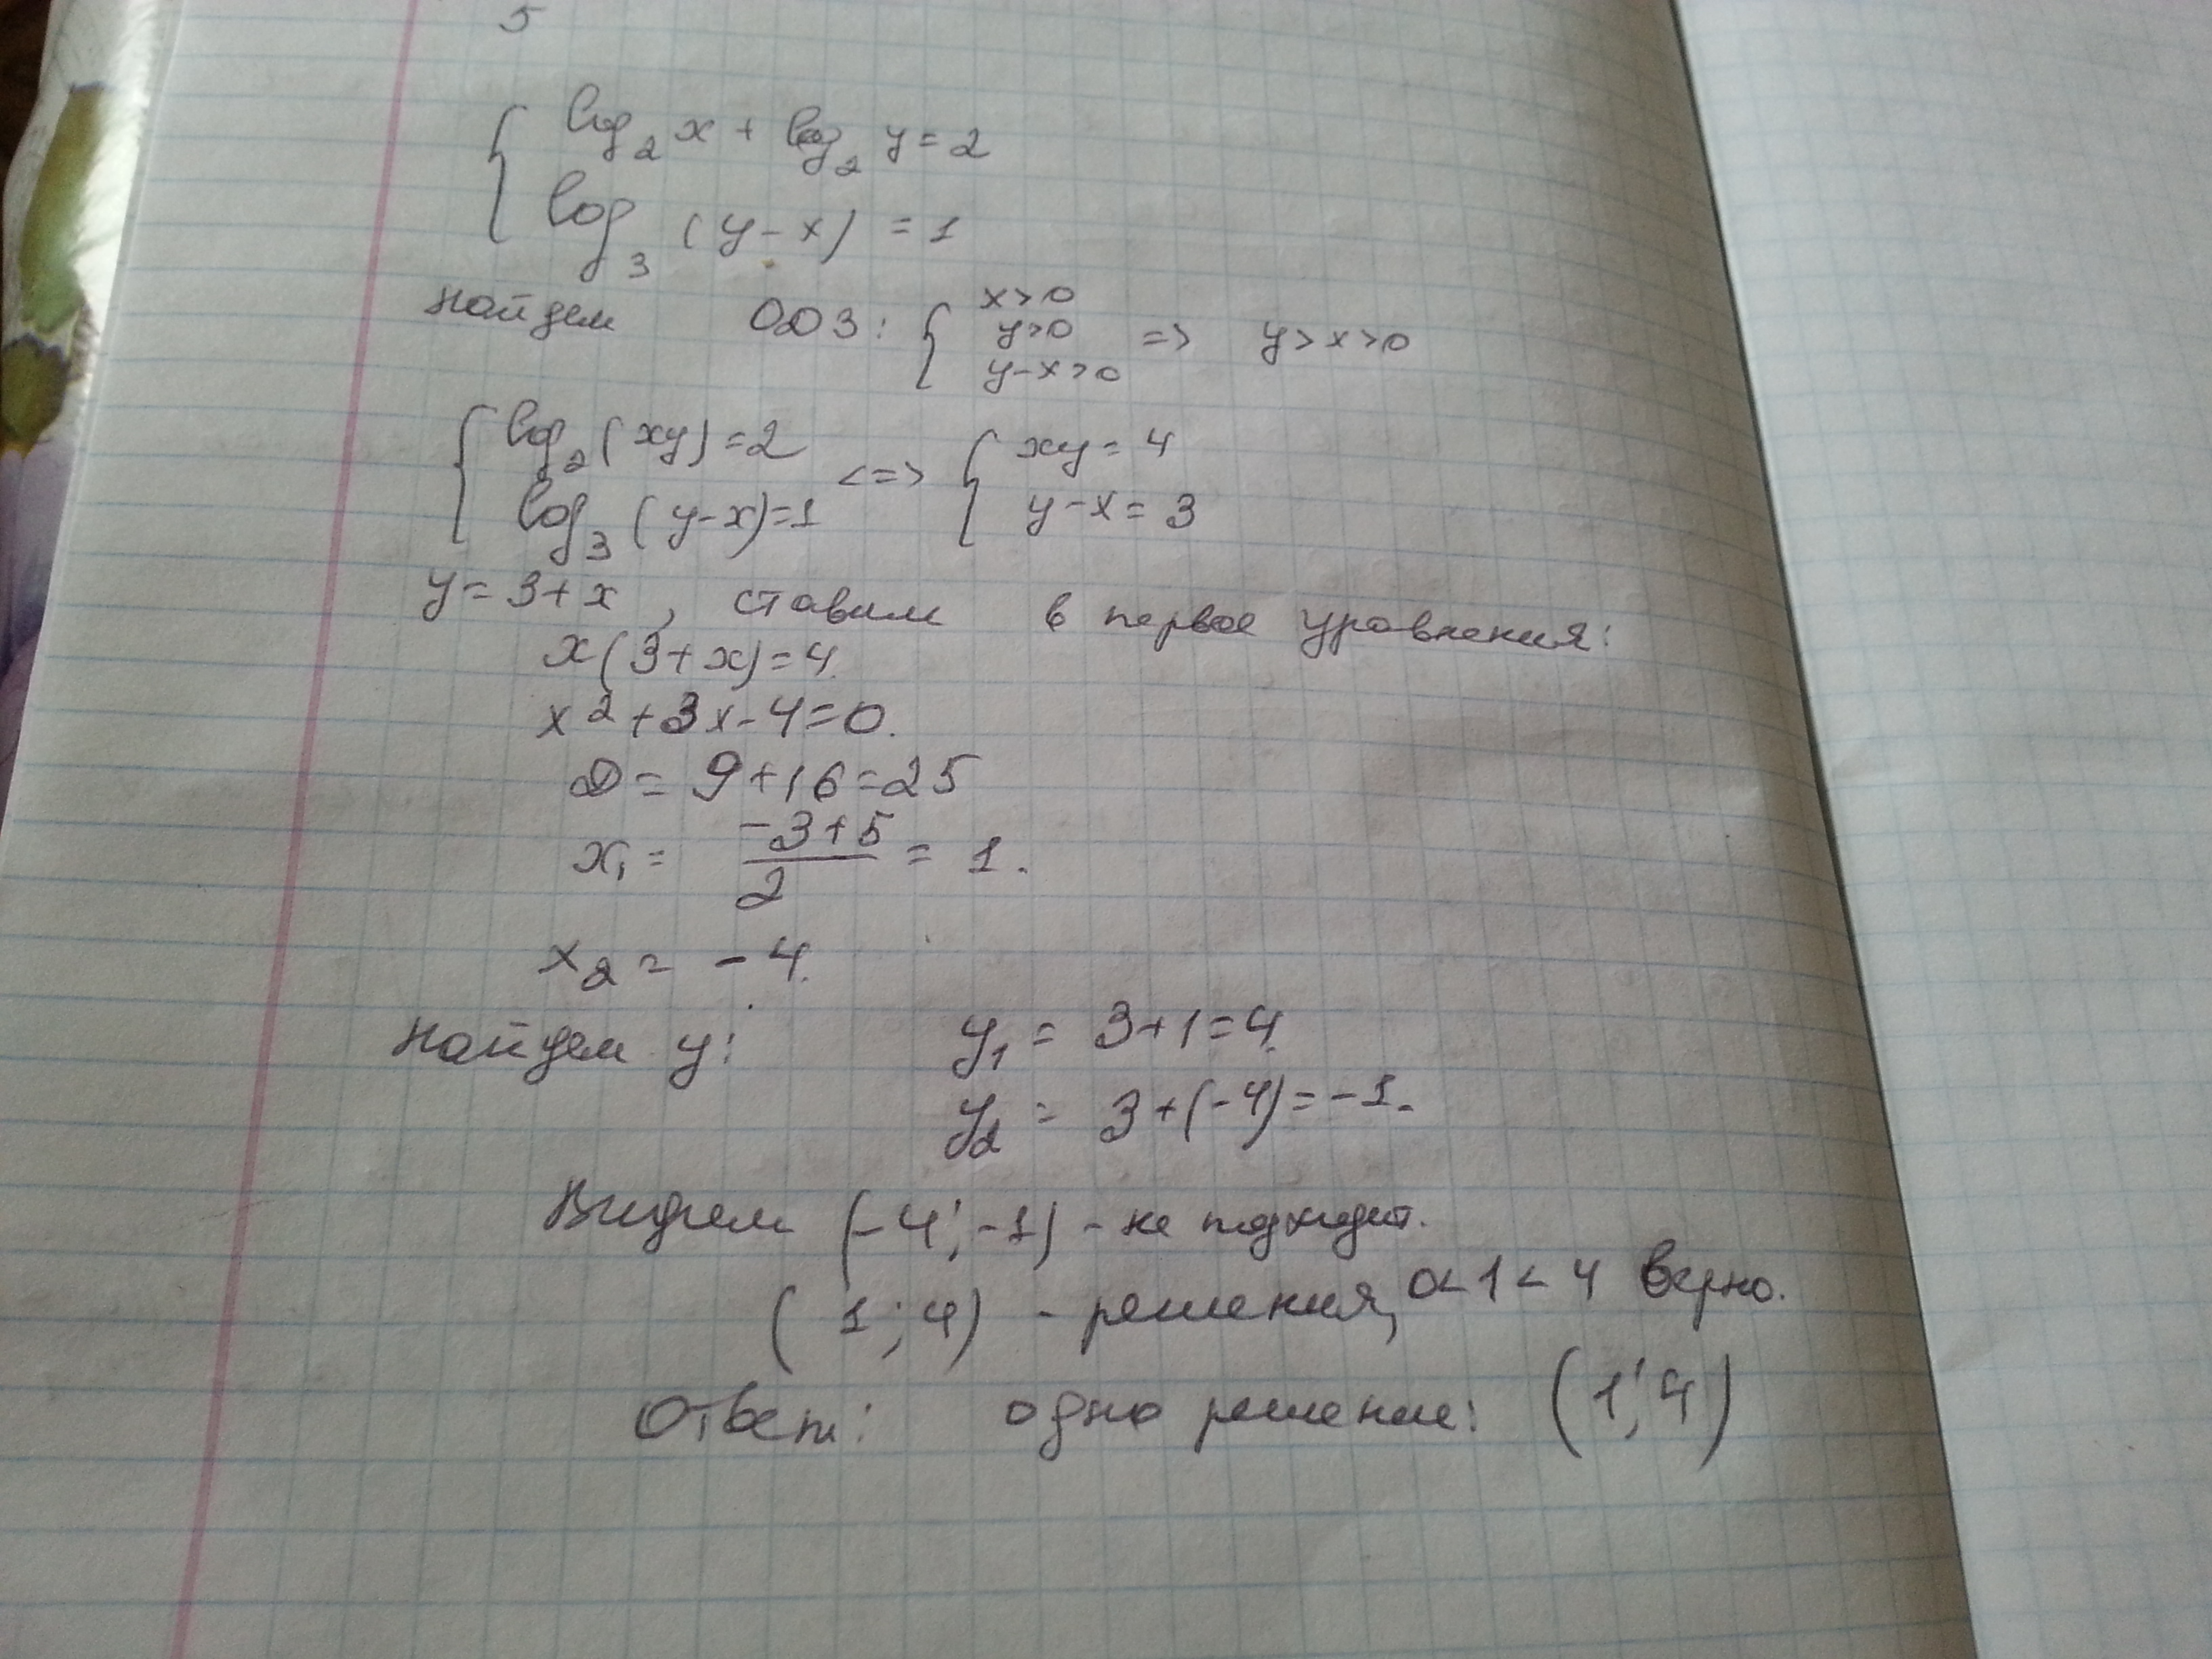 5
log₂ x + log₂ y = 2
log₃ (y - x) = 1
Найдем ОДЗ: { x > 0
y > 0 => y > x > 0
y - x > 0
{ log₂ (xy) = 2 <=> { xy = 4
log₃ (y - x) = 1 y - x = 3
y = 3 + x, ставим в первое уравнения:
x(3 + x) = 4.
x² + 3x - 4 = 0.
D = 9 + 16 = 25
x₁ = (-3 + 5)/2 = 1.
x₂ = -4.
Найдем y: y₁ = 3 + 1 = 4.
y₂ = 3 + (-4) = -1.
Видем (-4; -1) - не подходит.
(1; 4) - решения, 0 < 1 < 4 верно.
Ответ: одно решение: (1; 4)